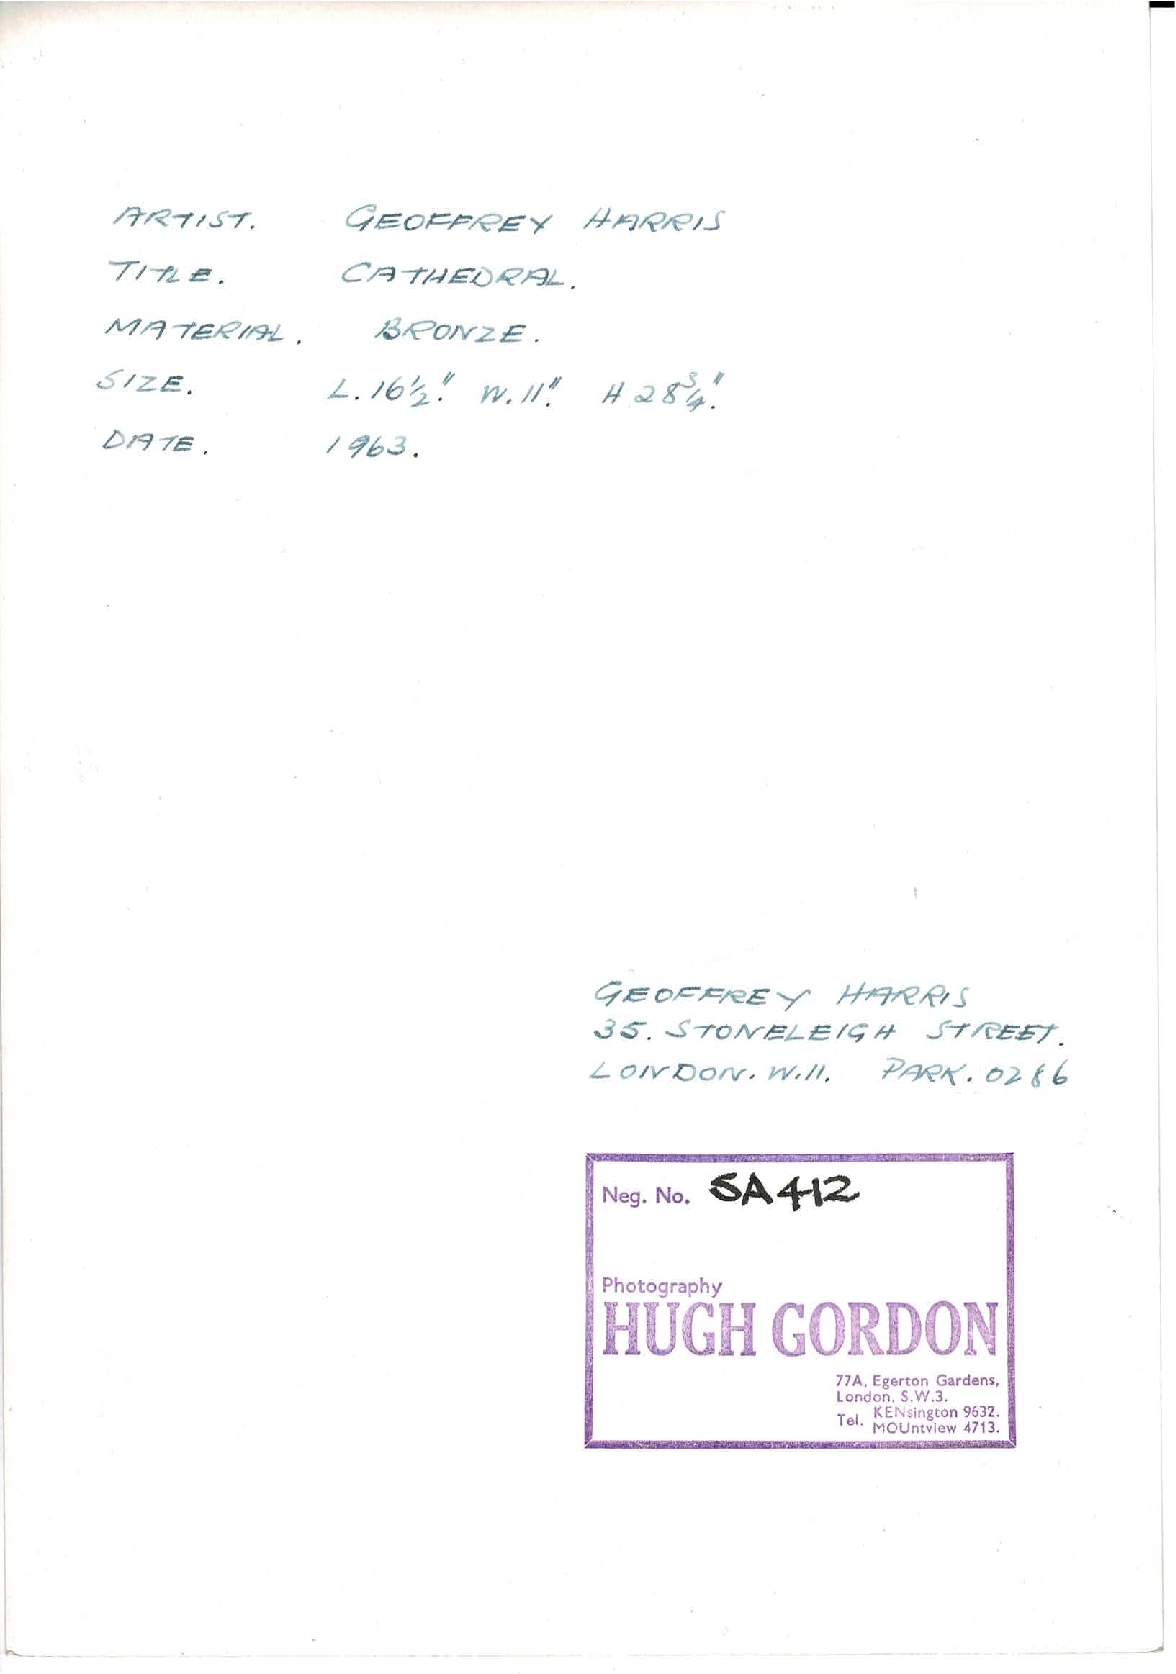 ARTIST. GEOFFREY HARRIS
TITLE. CATHEDRAL.
MATERIAL. BRONZE.
SIZE. L. 16½". W. 11". H 28¾".
DATE. 1963.
GEOFFREY HARRIS
35. STONELEIGH STREET.
LONDON. W.11. PARK. 0286
Neg. No. SA412
Photography
HUGH GORDON
77A, Egerton Gardens,
London, S.W.3.
Tel. KENsington 9632.
MOUntview 4713.